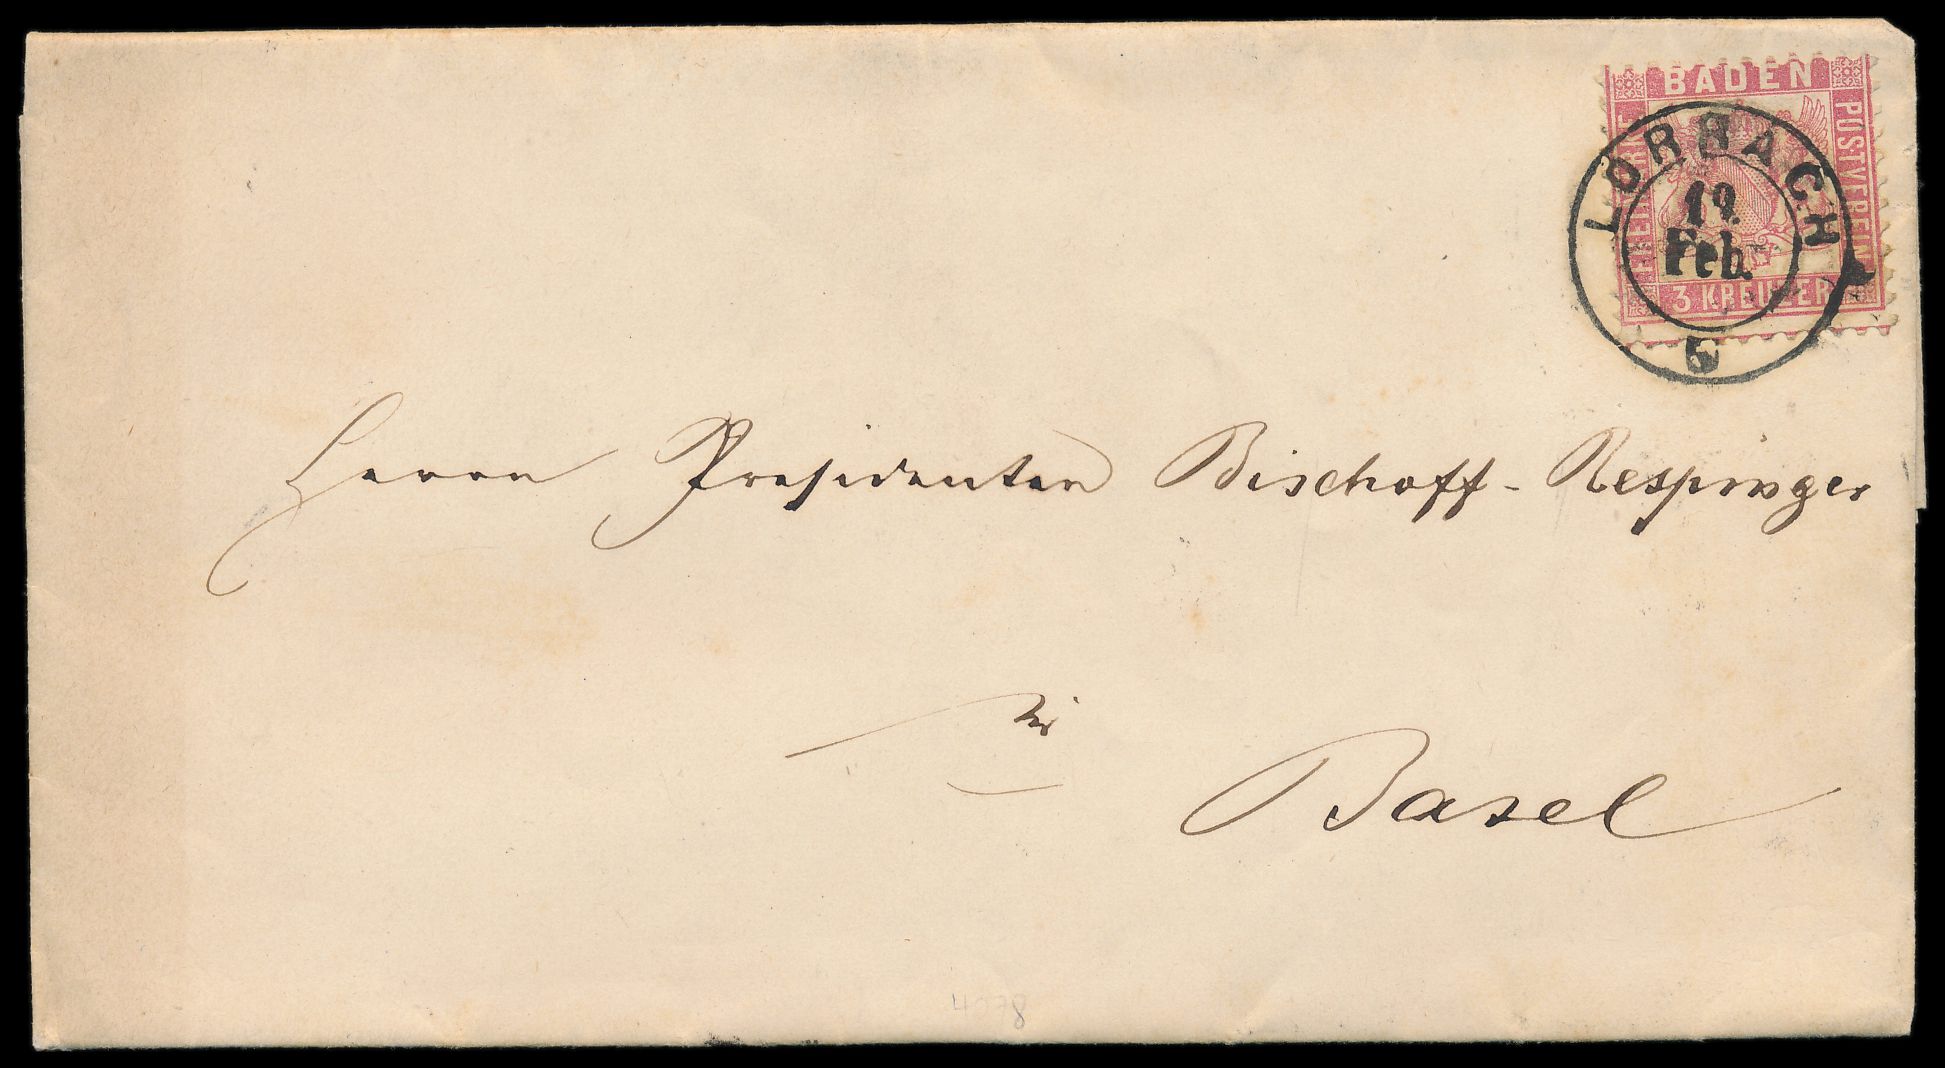 BADEN
FREIMARKE
POSTVEREIN
3 KREUZER
LÖRRACH
19.
Feb.
5
Herrn Präsidenten Bischoff - Respinger
in
Basel